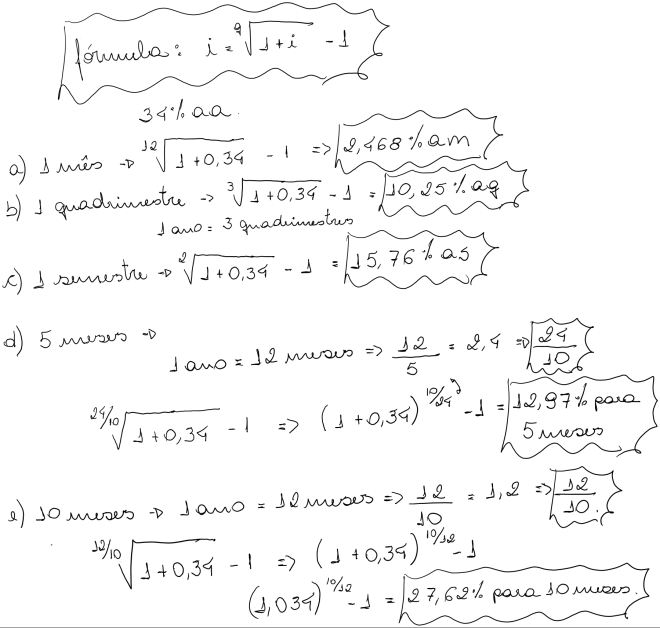 fórmula: i = ⁹√(1+i) - 1
34% aa.
a) 1 mês → ¹²√(1+0,34) - 1 => 2,468% am
b) 1 quadrimestre → ³√(1+0,34) - 1 = 10,25% aq
1 ano = 3 quadrimestres
c) 1 semestre → ²√(1+0,34) - 1 = 15,76% as
d) 5 meses →
1 ano = 12 meses => 12/5 = 2,4 => 24/10
²⁴/¹⁰√(1+0,34) - 1 => (1+0,34)^10/24 - 1 = 12,97% para 5 meses
e) 10 meses → 1 ano = 12 meses => 12/10 = 1,2 => 12/10.
¹²/¹⁰√(1+0,34) - 1 => (1+0,34)^10/12 - 1
(1,034)^10/12 - 1 = 27,62% para 10 meses.